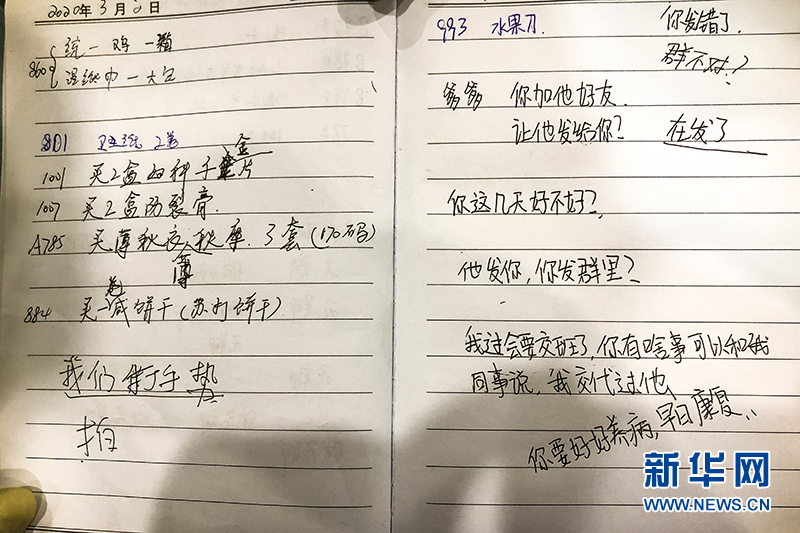 2020年3月2日
860
统一 鸡 一颗
湿纸巾 一大包
801
1001 买2盒 种子 片
金
1007 买2盒防裂膏.
A785 买薄秋衣秋裤. 3套(170码)
薄
884 买一 咸饼干(苏打饼干)
我们 打手势
拍
993 水果刀.
你发错了.
群不对?
爹爹 你加他好友.
让他发给你? 在发了
你这几天好不好?
他发你,你发群里?
我过会要交班了,你有啥事可以和我
同事说,我交代过他,
你要好好养病,早日康复..
新华网
WWW.NEWS.CN